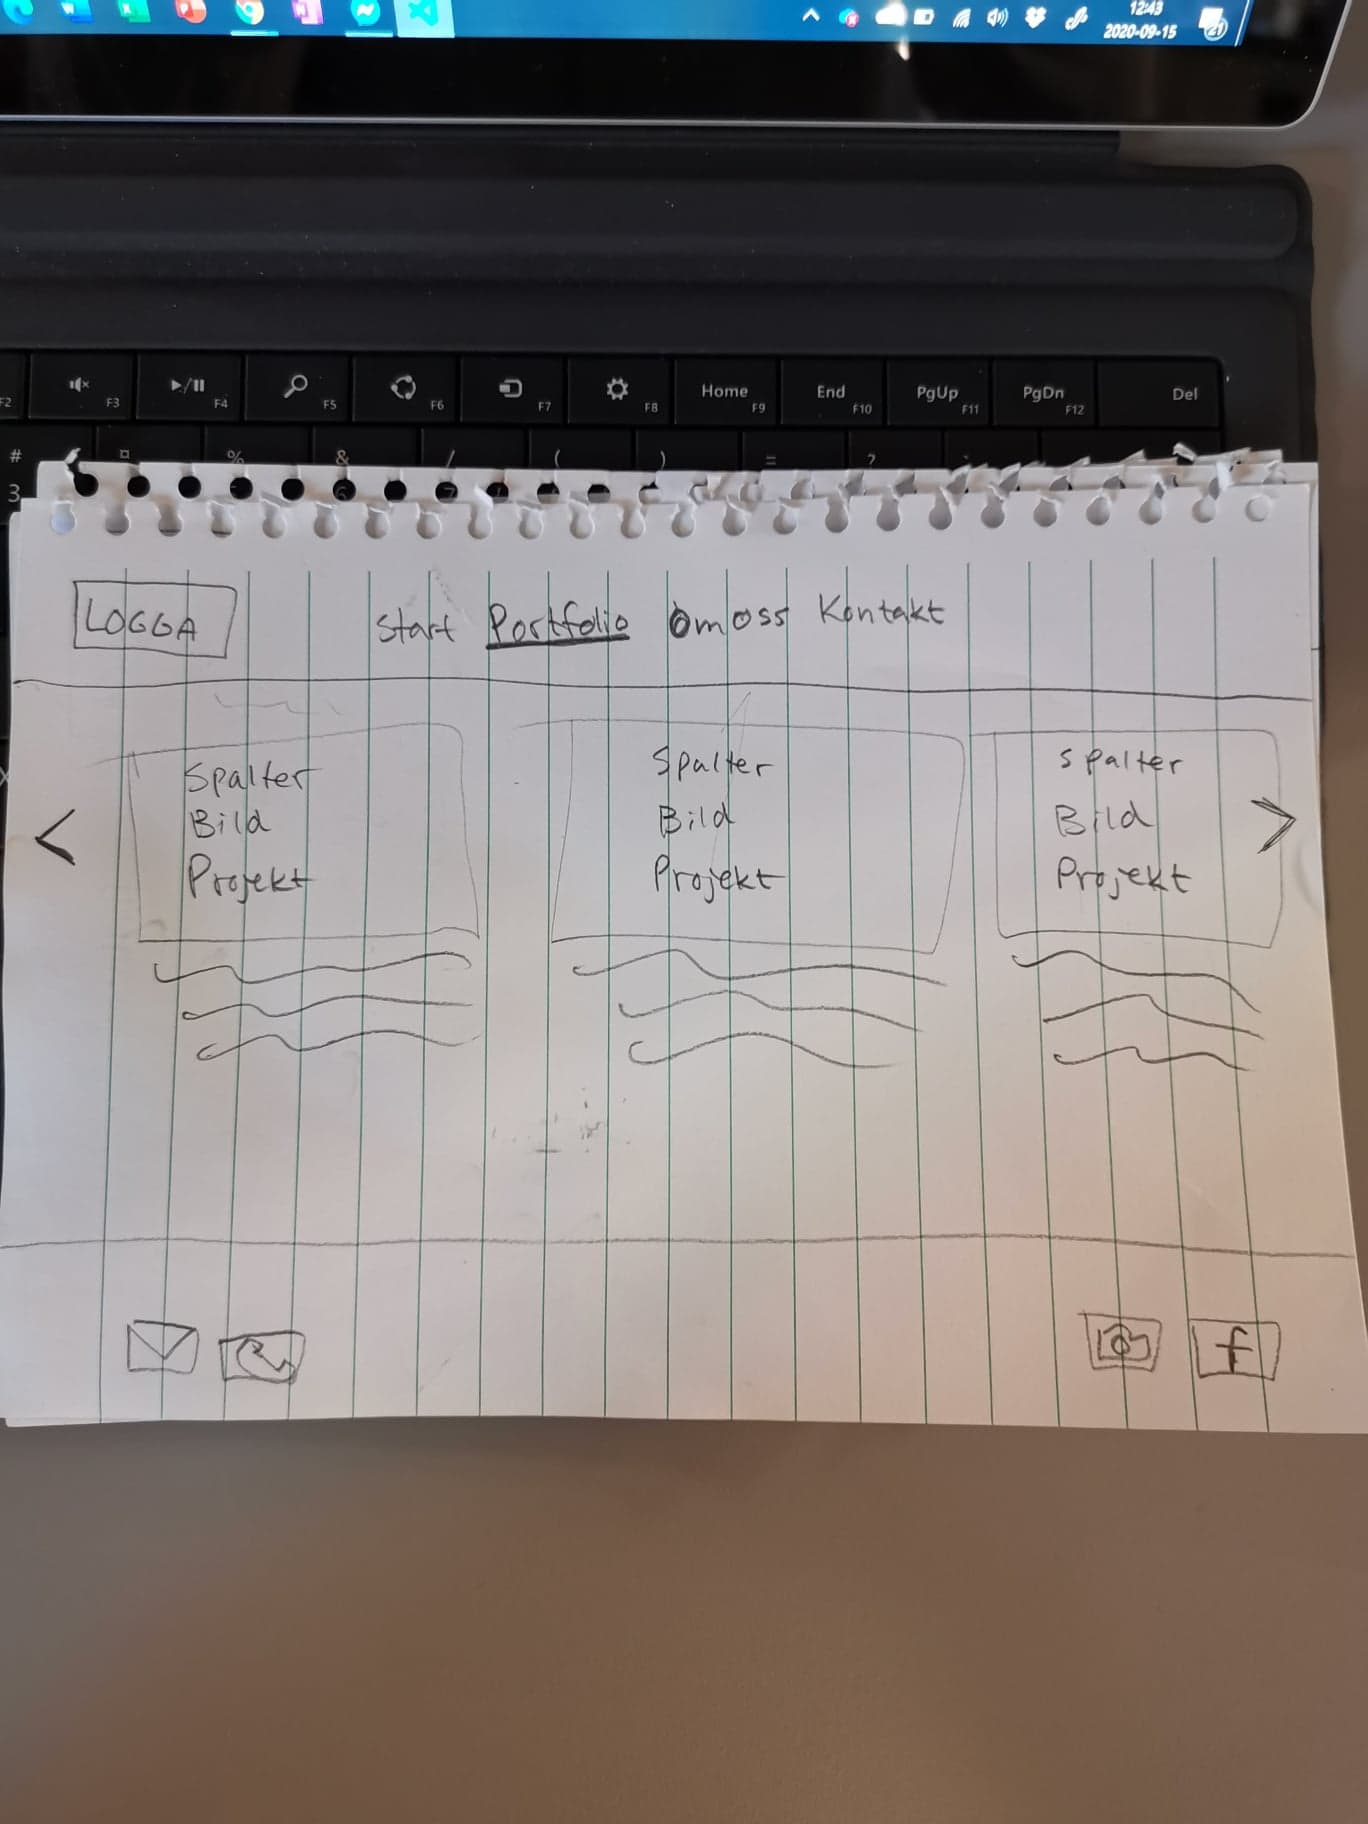 12:43
2020-09-15
21
F2 F3 F4 F5 F6 F7 F8 Home F9 End F10 PgUp F11 PgDn F12 Del
# ¤ % & / ( ) = ?
3
LOGGA
Start Portfolio Om oss Kontakt
Spalter
Bild
Projekt
Spalter
Bild
Projekt
Spalter
Bild
Projekt
f